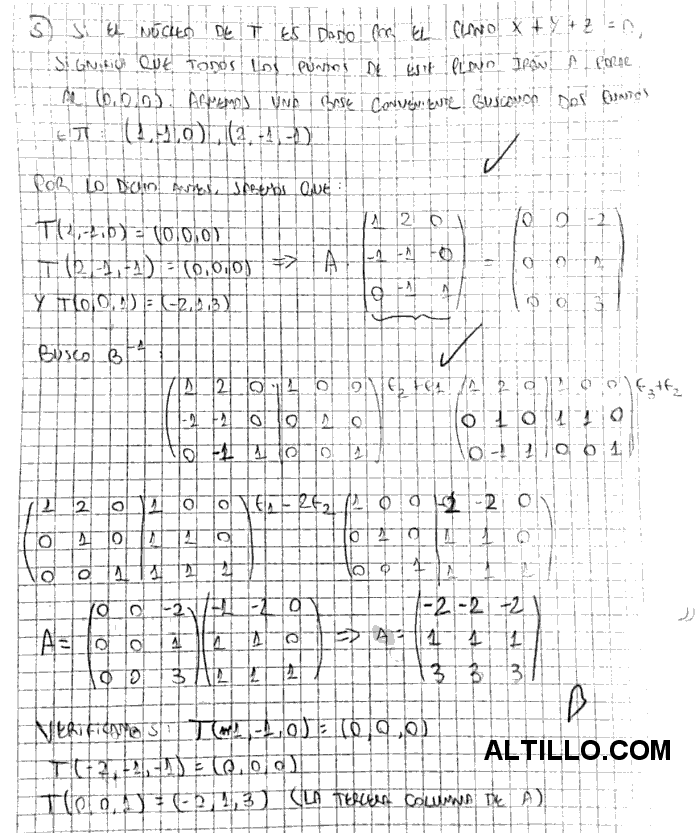 5) SI EL NÚCLEO DE T ES DADO POR EL PLANO X + Y + Z = 0,
SIGNIFICA QUE TODOS LOS PUNTOS DE ESTE PLANO IRÁN A PARAR
AL (0,0,0). ARMEMOS UNA BASE CONVENIENTE BUSCANDO DOS PUNTOS
∈ Π: (1,-1,0), (2,-1,-1)
POR LO DICHO ANTES, SABEMOS QUE:
T(1,-1,0) = (0,0,0)
T(2,-1,-1) = (0,0,0) => A.
Y T(0,0,1) = (-2,1,3)
1 2 0
-1 -1 -0
0 -1 1
=
0 0 -2
0 0 1
0 0 3
BUSCO B^-1:
1 2 0 | 1 0 0
-1 -1 0 | 0 1 0
0 -1 1 | 0 0 1
F2 + F1
1 2 0 | 1 0 0
0 1 0 | 1 1 0
0 -1 1 | 0 0 1
F3 + F2
1 2 0 | 1 0 0
0 1 0 | 1 1 0
0 0 1 | 1 1 1
F1 - 2F2
1 0 0 | -1 -2 0
0 1 0 | 1 1 0
0 0 1 | 1 1 1
A =
0 0 -2
0 0 1
0 0 3
-1 -2 0
1 1 0
1 1 1
=> A =
-2 -2 -2
1 1 1
3 3 3
B
VERIFICAMOS: T(1,-1,0) = (0,0,0)
T(-2,-1,-1) = (0,0,0)
T(0,0,1) = (-2,1,3) (LA TERCERA COLUMNA DE A)
ALTILLO.COM